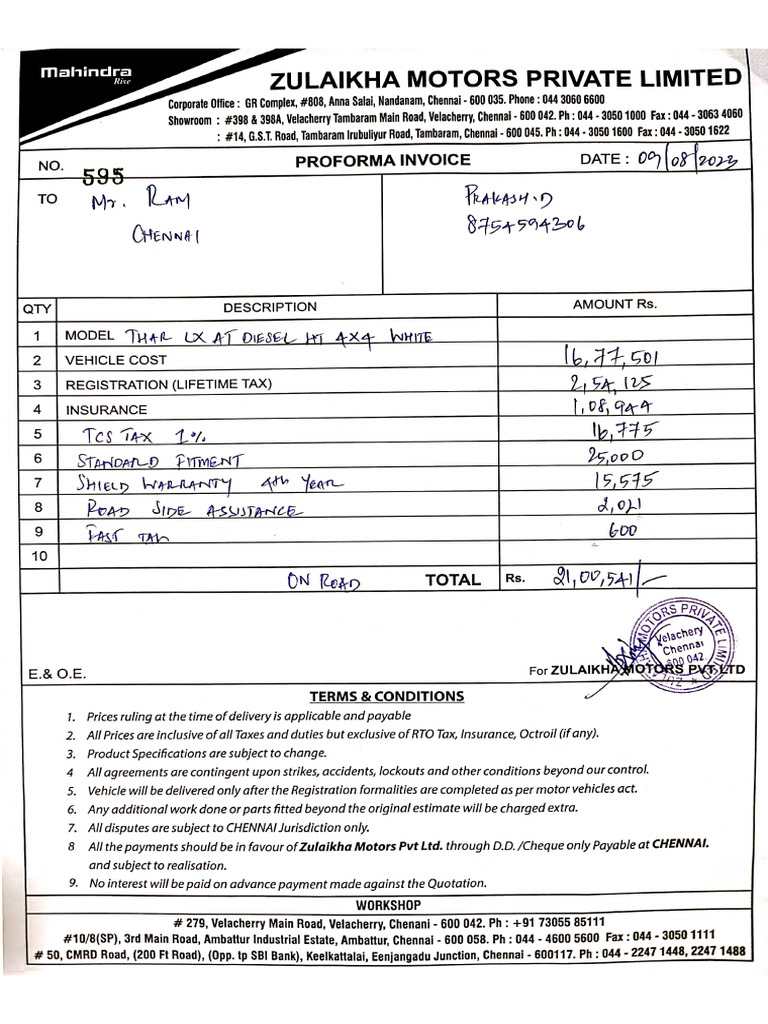 Mahindra
Rise
ZULAIKHA MOTORS PRIVATE LIMITED
Corporate Office : GR Complex, #808, Anna Salai, Nandanam, Chennai - 600 035. Phone : 044 3060 6600
Showroom : #398 & 398A, Velacherry Tambaram Main Road, Velacherry, Chennai - 600 042. Ph : 044 - 3050 1000 Fax : 044 - 3063 4060
: #14, G.S.T. Road, Tambaram Irubuliyur Road, Tambaram, Chennai - 600 045. Ph : 044 - 3050 1600 Fax : 044 - 3050 1622
NO. 595 PROFORMA INVOICE DATE : 09/08/2023
TO Mr. RAM PRAKASH.D
CHENNAI 8754594306
QTY DESCRIPTION AMOUNT Rs.
1 MODEL THAR LX AT DIESEL HT 4X4 WHITE
2 VEHICLE COST 16,77,501
3 REGISTRATION (LIFETIME TAX) 2,54,125
4 INSURANCE 1,08,944
5 TCS TAX 1% 16,775
6 STANDARD FITMENT 25,000
7 SHIELD WARRANTY 4th YEAR 15,575
8 ROAD SIDE ASSISTANCE 2,021
9 FAST 600
10
ON ROAD TOTAL Rs. 21,00,541/-
MOTORS PRIVATE LIMITED
Velachery
Chennai
600 042
E.& O.E. For ZULAIKHA MOTORS PVT LTD
TERMS & CONDITIONS
1. Prices ruling at the time of delivery is applicable and payable
2. All Prices are inclusive of all Taxes and duties but exclusive of RTO Tax, Insurance, Octroil (if any).
3. Product Specifications are subject to change.
4 All agreements are contingent upon strikes, accidents, lockouts and other conditions beyond our control.
5. Vehicle will be delivered only after the Registration formalities are completed as per motor vehicles act.
6. Any additional work done or parts fitted beyond the original estimate will be charged extra.
7. All disputes are subject to CHENNAI Jurisdiction only.
8 All the payments should be in favour of Zulaikha Motors Pvt Ltd. through D.D. /Cheque only Payable at CHENNAI.
and subject to realisation.
9. No interest will be paid on advance payment made against the Quotation.
WORKSHOP
# 279, Velacherry Main Road, Velacherry, Chenani - 600 042. Ph : +91 73055 85111
#10/8(SP), 3rd Main Road, Ambattur Industrial Estate, Ambattur, Chennai - 600 058. Ph : 044 - 4600 5600 Fax : 044 - 3050 1111
# 50, CMRD Road, (200 Ft Road), (Opp. tp SBI Bank), Keelkattalai, Eenjangadu Junction, Chennai - 600117. Ph : 044 - 2247 1448, 2247 1488